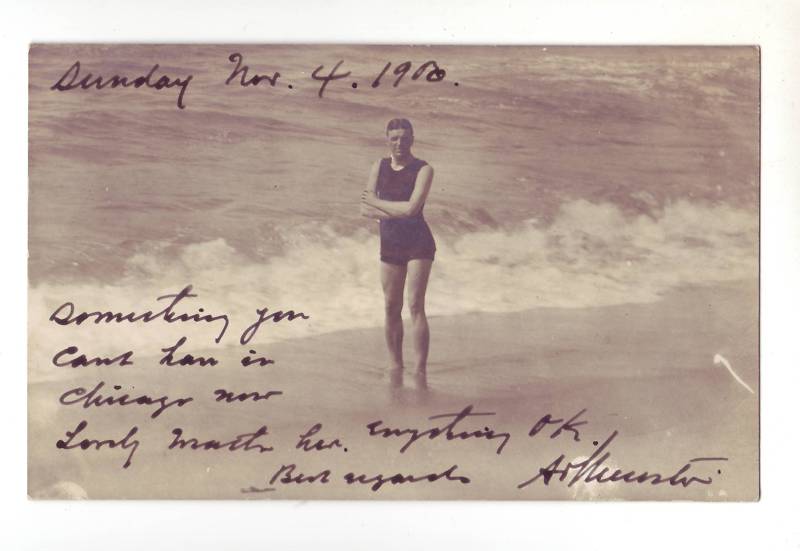 Sunday Nov. 4. 1900.
Something you
Cant have in
Chicago now
Lovely Weather here. Everything OK.
Best regards